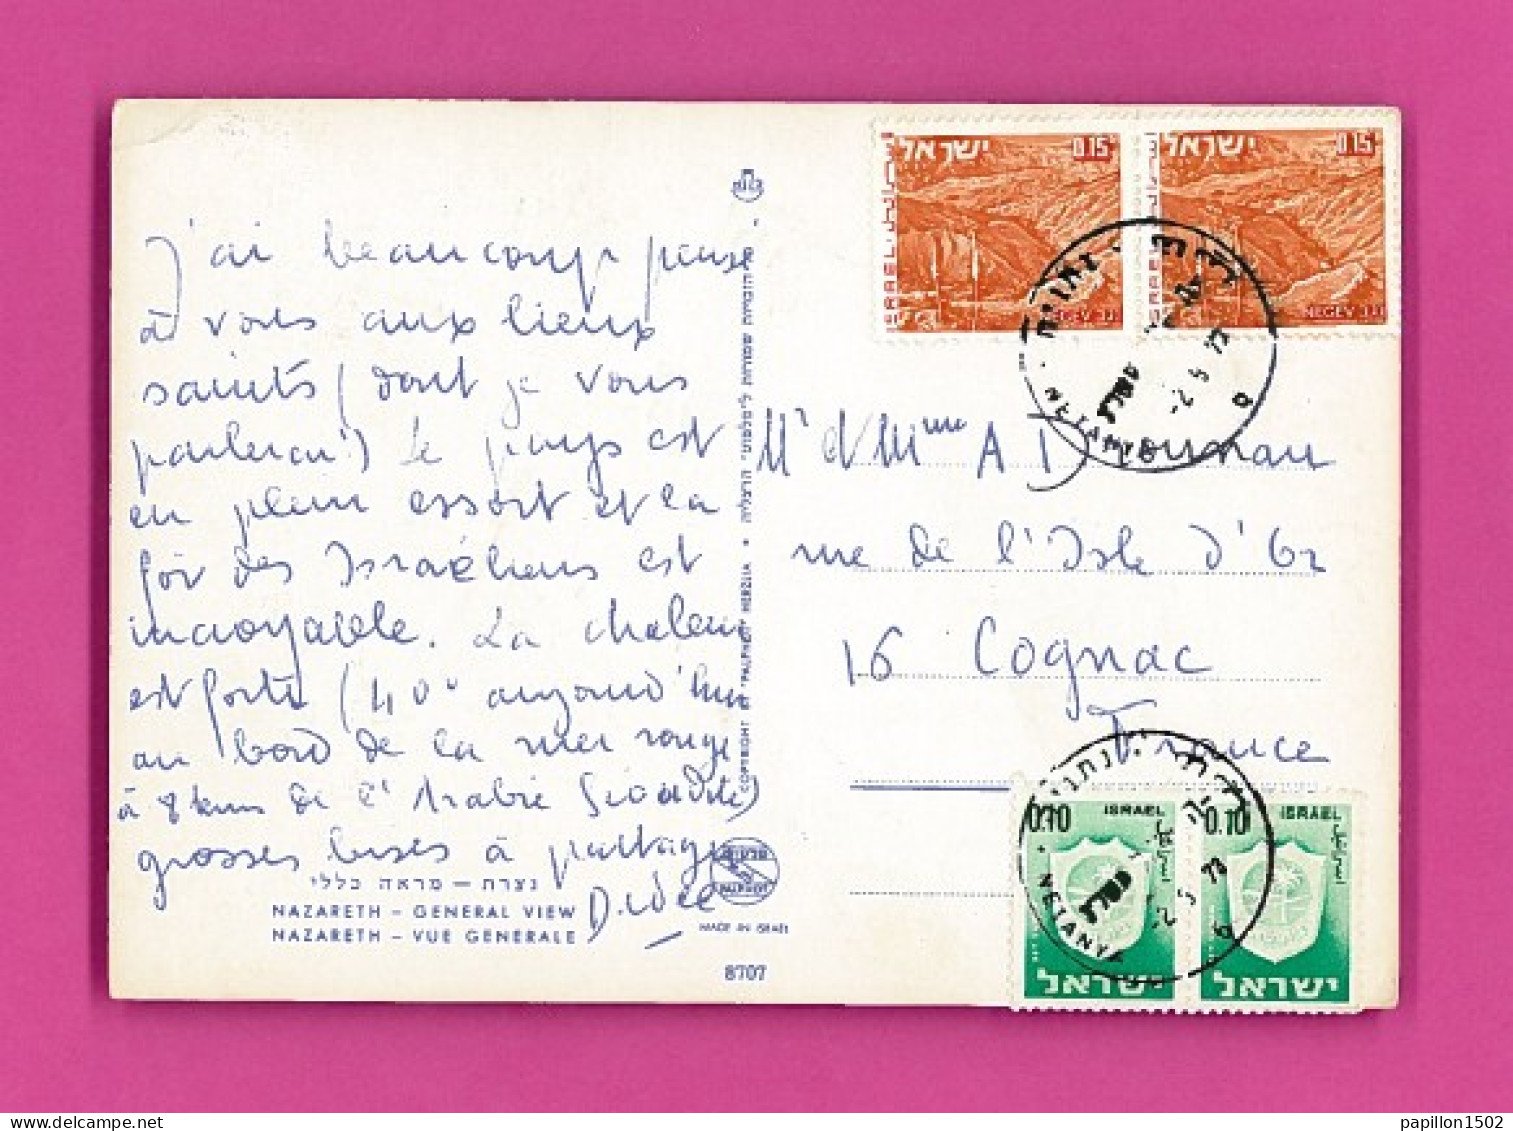 J'ai beaucoup pensé
à vous aux lieux
saints (dont je vous
parlerai!) Le pays est
en plein essort et la
foi des Israéliens est
incroyable. La chaleur
est forte (40° aujourd'hui
au bord de la mer rouge
à 8 kms de l'Arabie Séoudite)
grosses bises à partager
Didée
נצרת — מראה כללי
NAZARETH – GENERAL VIEW
NAZARETH – VUE GÉNÉRALE
COPYRIGHT BY "PALPHOT" HERZLIA •
PALPHOT
MADE IN ISRAEL
8707
ישראל 0.15
ISRAEL
NEGEV נגב
ישראל 0.15
ISRAEL
NEGEV נגב
NETANYA
-2.5.73
Mr et Mme A
rue de l'Isle d'Or
16 Cognac
France
0.10 ISRAEL
ישראל
0.10 ISRAEL
ישראל
NETANYA
-2.5.73
papillon1502